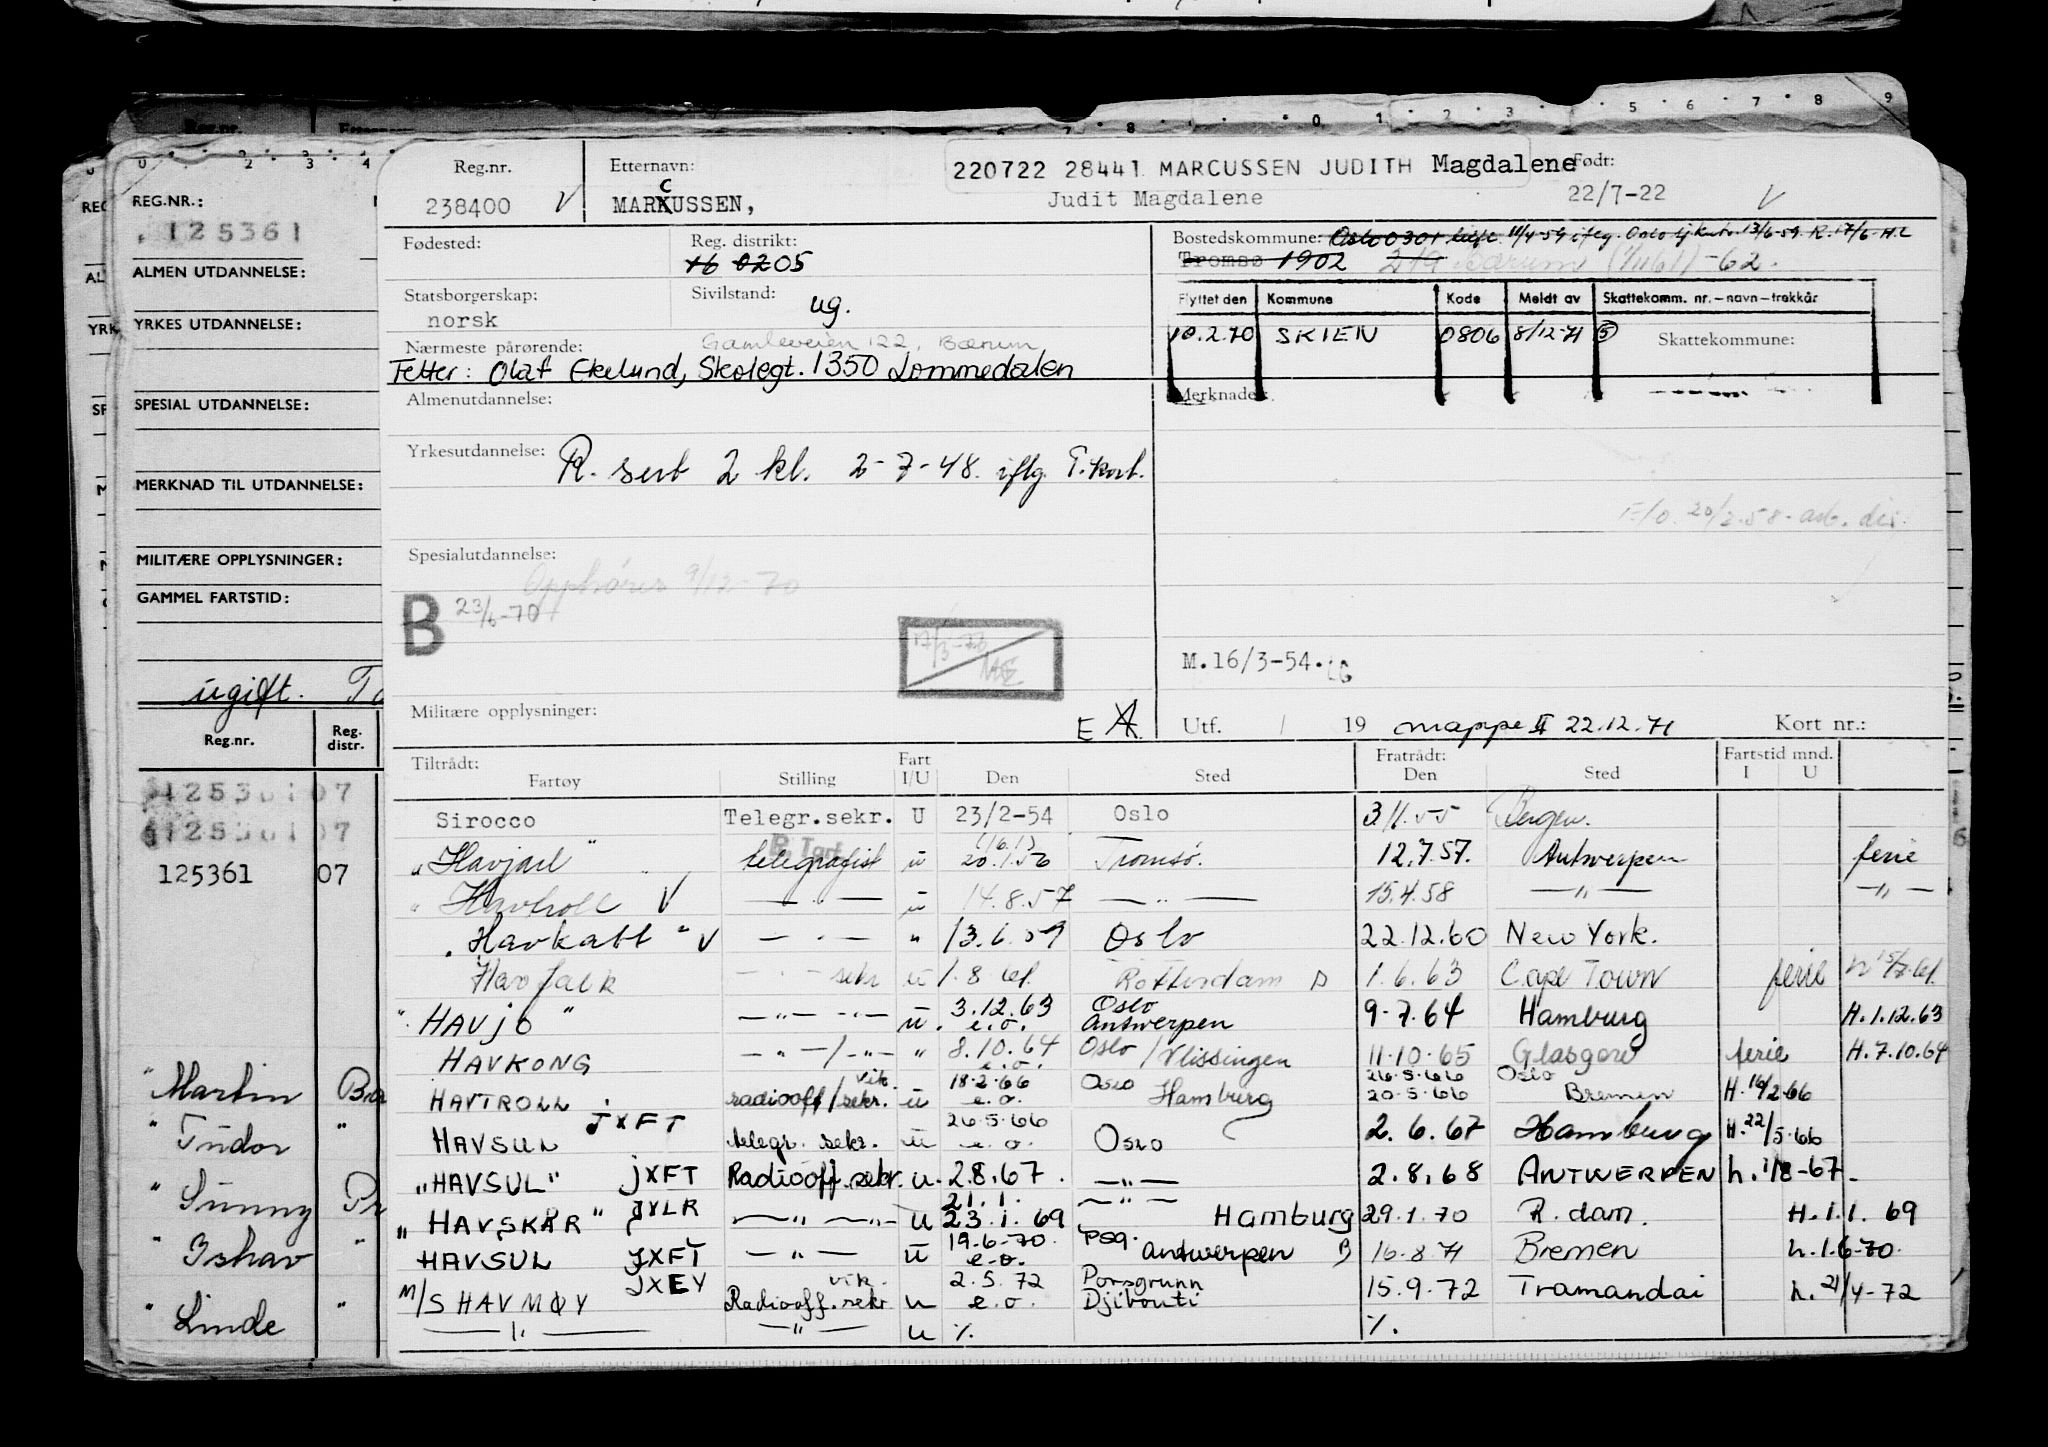 Reg.nr. Etternavn: 220722 28441 MARCUSSEN JUDITH Magdalene Født:
238400 V MARKUSSEN, C Judit Magdalene 22/7-22 V
Fødested: Reg. distrikt: Bostedskommune: Oslo 0301 11/4-59 iflg. Oslo 13/6-59. R. 17/6-
16 02 05 Tromsø 1902 219 Bærum -62.
Statsborgerskap: Sivilstand: ug. Flyttet den Kommune Kode Meldt av Skattekomm. nr.-navn-trekkår
norsk 10.2.70 SKIEN 0806 8/12-71 5 Skattekommune:
Nærmeste pårørende: Gamleveien 122, Bærum
Fetter: Olaf Ekelund, Skolegt. 1350 Lommedalen
Almenutdannelse: Merknader:
Yrkesutdannelse: R. sert 2 kl. 2-7-48. iflg. T.kort.
F/O. 20/2-58- arb. dir.
Spesialutdannelse:
Opphører 9/12-70
B 23/6-70
M.16/3-54.
Militære opplysninger: E A Utf. / 19 mappe II 22.12.71 Kort nr.:
Tiltrådt: Fart Fratrådt: Fartstid mnd.
Fartøy Stilling I/U Den Sted Den Sted I U
Sirocco Telegr.sekr. U 23/2-54 Oslo 3.11.55 Bergen.
"Havjarl" telegrafist u (16.1) 20.1.56 Tromsø. 12.7.57. Antwerpen ferie
" Havtroll V — " — u 14.8.57 — " — 15.4.58 — " — — " —
"Havkatt" V — " — " 13.6.59 Oslo 22.12.60 New York.
Havfalk — " — sekr u 1.8 61. Rotterdam B 1.6.63 Cape Town ferie
"HAVJO" — " — " — u. 3.12.63 e.o. Oslo Antwerpen 9-7.64 Hamburg H.1.12.63
HAVKONG — " — / — " — " 8.10.64 e.o. Oslo / Vlissingen 11-10-65 Glasgow ferie H.7.10.64
HAVTROLL radiooff/sekr. vik. u 18-2-66 e.o. Oslo Hamburg 26-5-66 20-5-66 Oslo Bremen H.16/2-66
HAVSUL JXFT telegr. sekr. u 26-5-66 e.o. Oslo 2.6.67 Hamburg H.22/5-66
"HAVSUL" JXFT Radiooff.sekr. u. 2.8.67. — " — 2.8.68 ANTWERPEN h.1/8-67.
"HAVSKÅR" JXLR — " — " — u 21.1. 23.1.69 — " — Hamburg 29.1.70 R.dam. H.1.1.69
HAVSUL JXFT — " — u 19.6-70. e.o. Psg. Antwerpen B 16-8-71 Bremen h.1.6-70.
M/S HAVMØY JXEY vik. Radiooff.sekr u 2.5.72 e.o. Porsgrunn Djibouti 15.9.72 Tramandai h.21/4-72
— " — — " — u %. %.
REG.NR.:
125361
ALMEN UTDANNELSE:
YRKES UTDANNELSE:
SPESIAL UTDANNELSE:
MERKNAD TIL UTDANNELSE:
MILITÆRE OPPLYSNINGER:
GAMMEL FARTSTID:
ugift.
Reg.nr. Reg. distr.
125361 07
125361 07
125361 07
" Martin
" Tudor "
" Sunny
" Ishav "
" Linde "